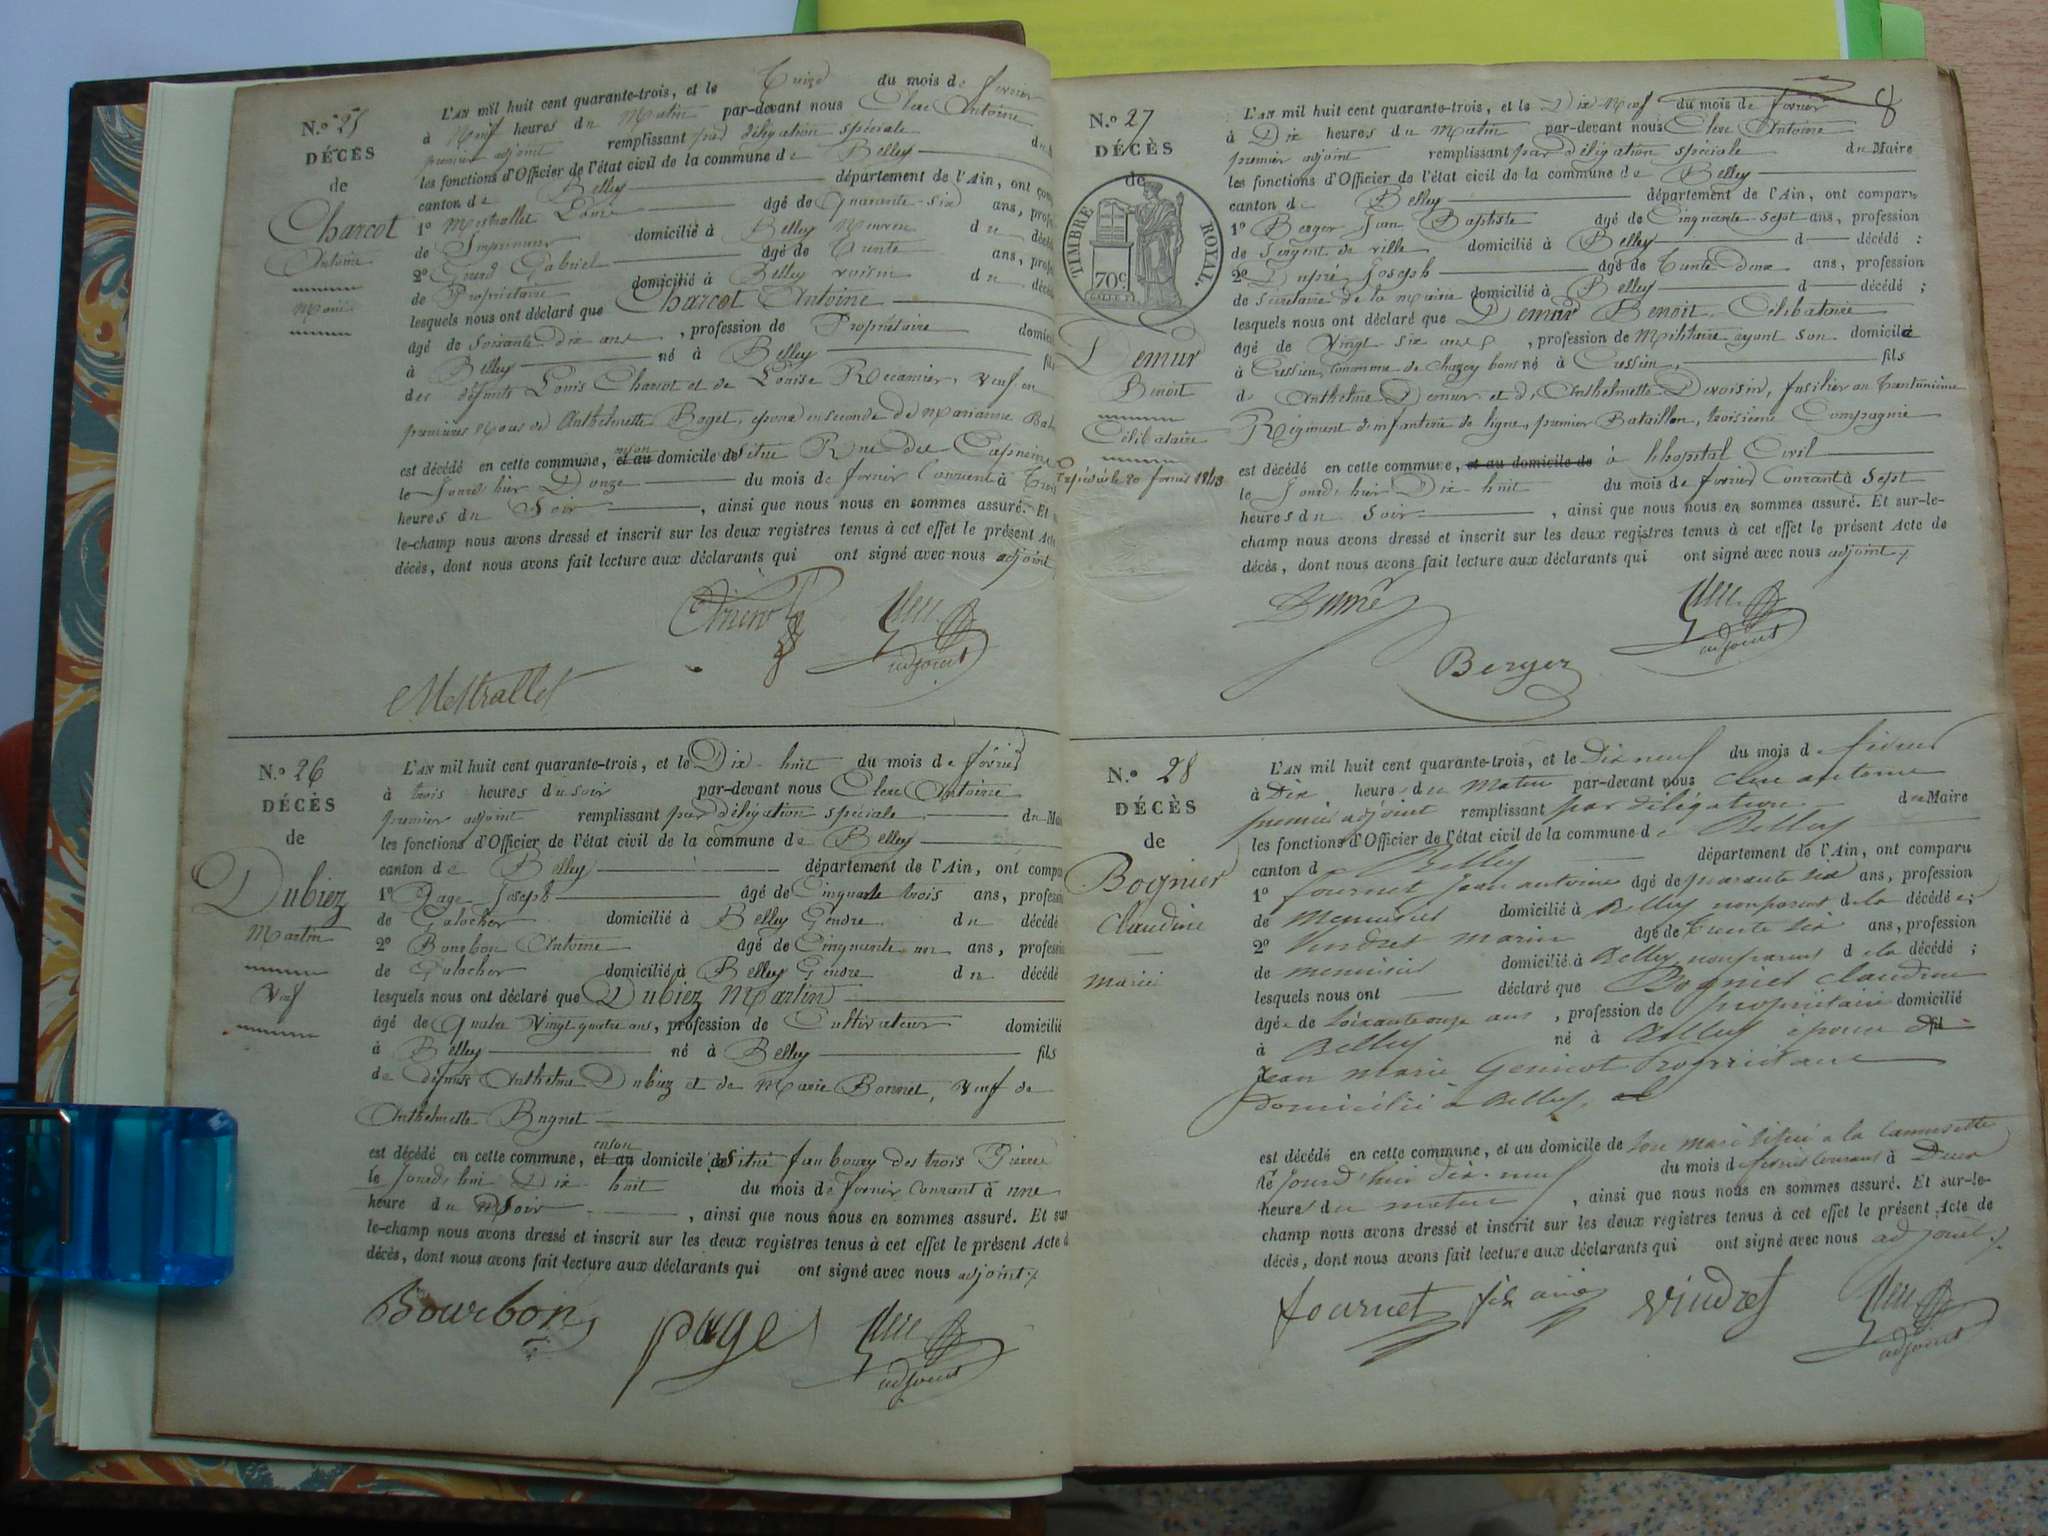 N.º 25
DÉCÈS
de
Charcot
Antoine
Marié
L'AN mil huit cent quarante-trois, et le Treize du mois de février
à Neuf heures du Matin par-devant nous Clerc Antoine
premier adjoint remplissant par délégation spéciale du
les fonctions d'Officier de l'état civil de la commune de Belley
canton de Belley département de l'Ain, ont
1º Mestrallet âgé de Quarante-six ans,
de Imprimeur domicilié à Belley du décédé
2º Gabriel âgé de Trente ans,
de Propriétaire domicilié à Belley voisin du
lesquels nous ont déclaré que Charcot Antoine
âgé de soixante-dix ans, profession de Propriétaire
à Belley né à Belley fils
des défunts Louis Charcot et de Louise Recamier, veuf en
premières noces de Anthelmette Boget, époux en seconde de Marianne
est décédé en cette commune, en son et au domicile de situé Rue des
le Jourd'hier Douze du mois de février Courant à Trois
heures du Soir, ainsi que nous nous en sommes assuré. Et
le-champ nous avons dressé et inscrit sur les deux registres tenus à cet effet le présent Acte
décès, dont nous avons fait lecture aux déclarants qui ont signé avec nous adjoint
Clerc
adjoint
Mestrallet
N.º 26
DÉCÈS
de
Dubiez
Martin
Veuf
L'AN mil huit cent quarante-trois, et le Dix-huit du mois de février
à trois heures du soir par-devant nous Clerc Antoine
premier adjoint remplissant par délégation spéciale du
les fonctions d'Officier de l'état civil de la commune de Belley
canton de Belley département de l'Ain, ont
1º Page Joseph âgé de Cinquante trois ans,
de Galocher domicilié à Belley Gendre du décédé
2º Bourbon Antoine âgé de Cinquante un ans,
de Galocher domicilié à Belley Gendre du décédé
lesquels nous ont déclaré que Dubiez Martin
âgé de Quatre Vingt quatre ans, profession de Cultivateur domicilié
à Belley né à Belley fils
de défunts Anthelme Dubiez et de Marie Bonnet, Veuf de
Anthelmette Bugnet
est décédé en cette commune, en son et au domicile de situé faubourg des trois
le Jourd'hui Dix huit du mois de février Courant à une
heure du Soir, ainsi que nous nous en sommes assuré. Et sur
le-champ nous avons dressé et inscrit sur les deux registres tenus à cet effet le présent Acte
décès, dont nous avons fait lecture aux déclarants qui ont signé avec nous adjoint
Bourbon page Clerc
adjoint
8
N.º 27
DÉCÈS
de
TIMBRE ROYAL
70ᶜ
Demur
Benoit
Célibataire
Expédié le 20 février 1843
L'AN mil huit cent quarante-trois, et le Dix-Neuf du mois de février
à Dix heures du Matin par-devant nous Clerc Antoine
premier adjoint remplissant par délégation spéciale du Maire
les fonctions d'Officier de l'état civil de la commune de Belley
canton de Belley département de l'Ain, ont comparu
1º Berger Jean Baptiste âgé de Cinquante-sept ans, profession
de Sergent de ville domicilié à Belley d décédé ;
2º Dupré Joseph âgé de Trente-deux ans, profession
de Secrétaire de la Mairie domicilié à Belley d décédé ;
lesquels nous ont déclaré que Demur Benoit, Célibataire
âgé de Vingt-six ans, profession de Militaire ayant son domicile
à Cressieu, Commune de Chazey bons né à Cressieu, fils
de Anthelme Demur et d'Anthelmette Devoisin, fusilier au
Régiment d'infanterie de ligne, premier Bataillon, troisième Compagnie
est décédé en cette commune, et au domicile de à l'hopital Civil
le Jourd'hier Dix-huit du mois de février Courant à Sept
heures du Soir, ainsi que nous nous en sommes assuré. Et sur-le-
champ nous avons dressé et inscrit sur les deux registres tenus à cet effet le présent Acte de
décès, dont nous avons fait lecture aux déclarants qui ont signé avec nous adjoint
Dupré Clerc
adjoint
Berger
N.º 28
DÉCÈS
de
Bognier
Claudine
Mariée
L'AN mil huit cent quarante-trois, et le Dix neuf du mois de février
à Dix heures du Matin par-devant nous Clerc antoine
premier adjoint remplissant par délégation du Maire
les fonctions d'Officier de l'état civil de la commune de Belley
canton d Belley département de l'Ain, ont comparu
1º fournet Jean antoine âgé de quarante six ans, profession
de Menuisier domicilié à Belley non parent de la décédée ;
2º Vindret Marin âgé de trente six ans, profession
de menuisier domicilié à Belley non parent de la décédé ;
lesquels nous ont déclaré que Bognier Claudine
âgée de soixante onze ans, profession de propriétaire domicilié
à Belley né à Belley épouse de fil
Jean Marie Geninot Propriétaire
domicilié à Belley,
est décédé en cette commune, et au domicile de son mari situé à la
le Jourd'hui dix-neuf du mois de février courant à Deux
heures du matin, ainsi que nous nous en sommes assuré. Et sur-le-
champ nous avons dressé et inscrit sur les deux registres tenus à cet effet le présent Acte de
décès, dont nous avons fait lecture aux déclarants qui ont signé avec nous adjoint.
fournet fils ainé Vindret Clerc
adjoint